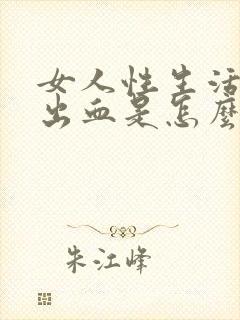 女人性生活
出血是怎麼
朱江峰